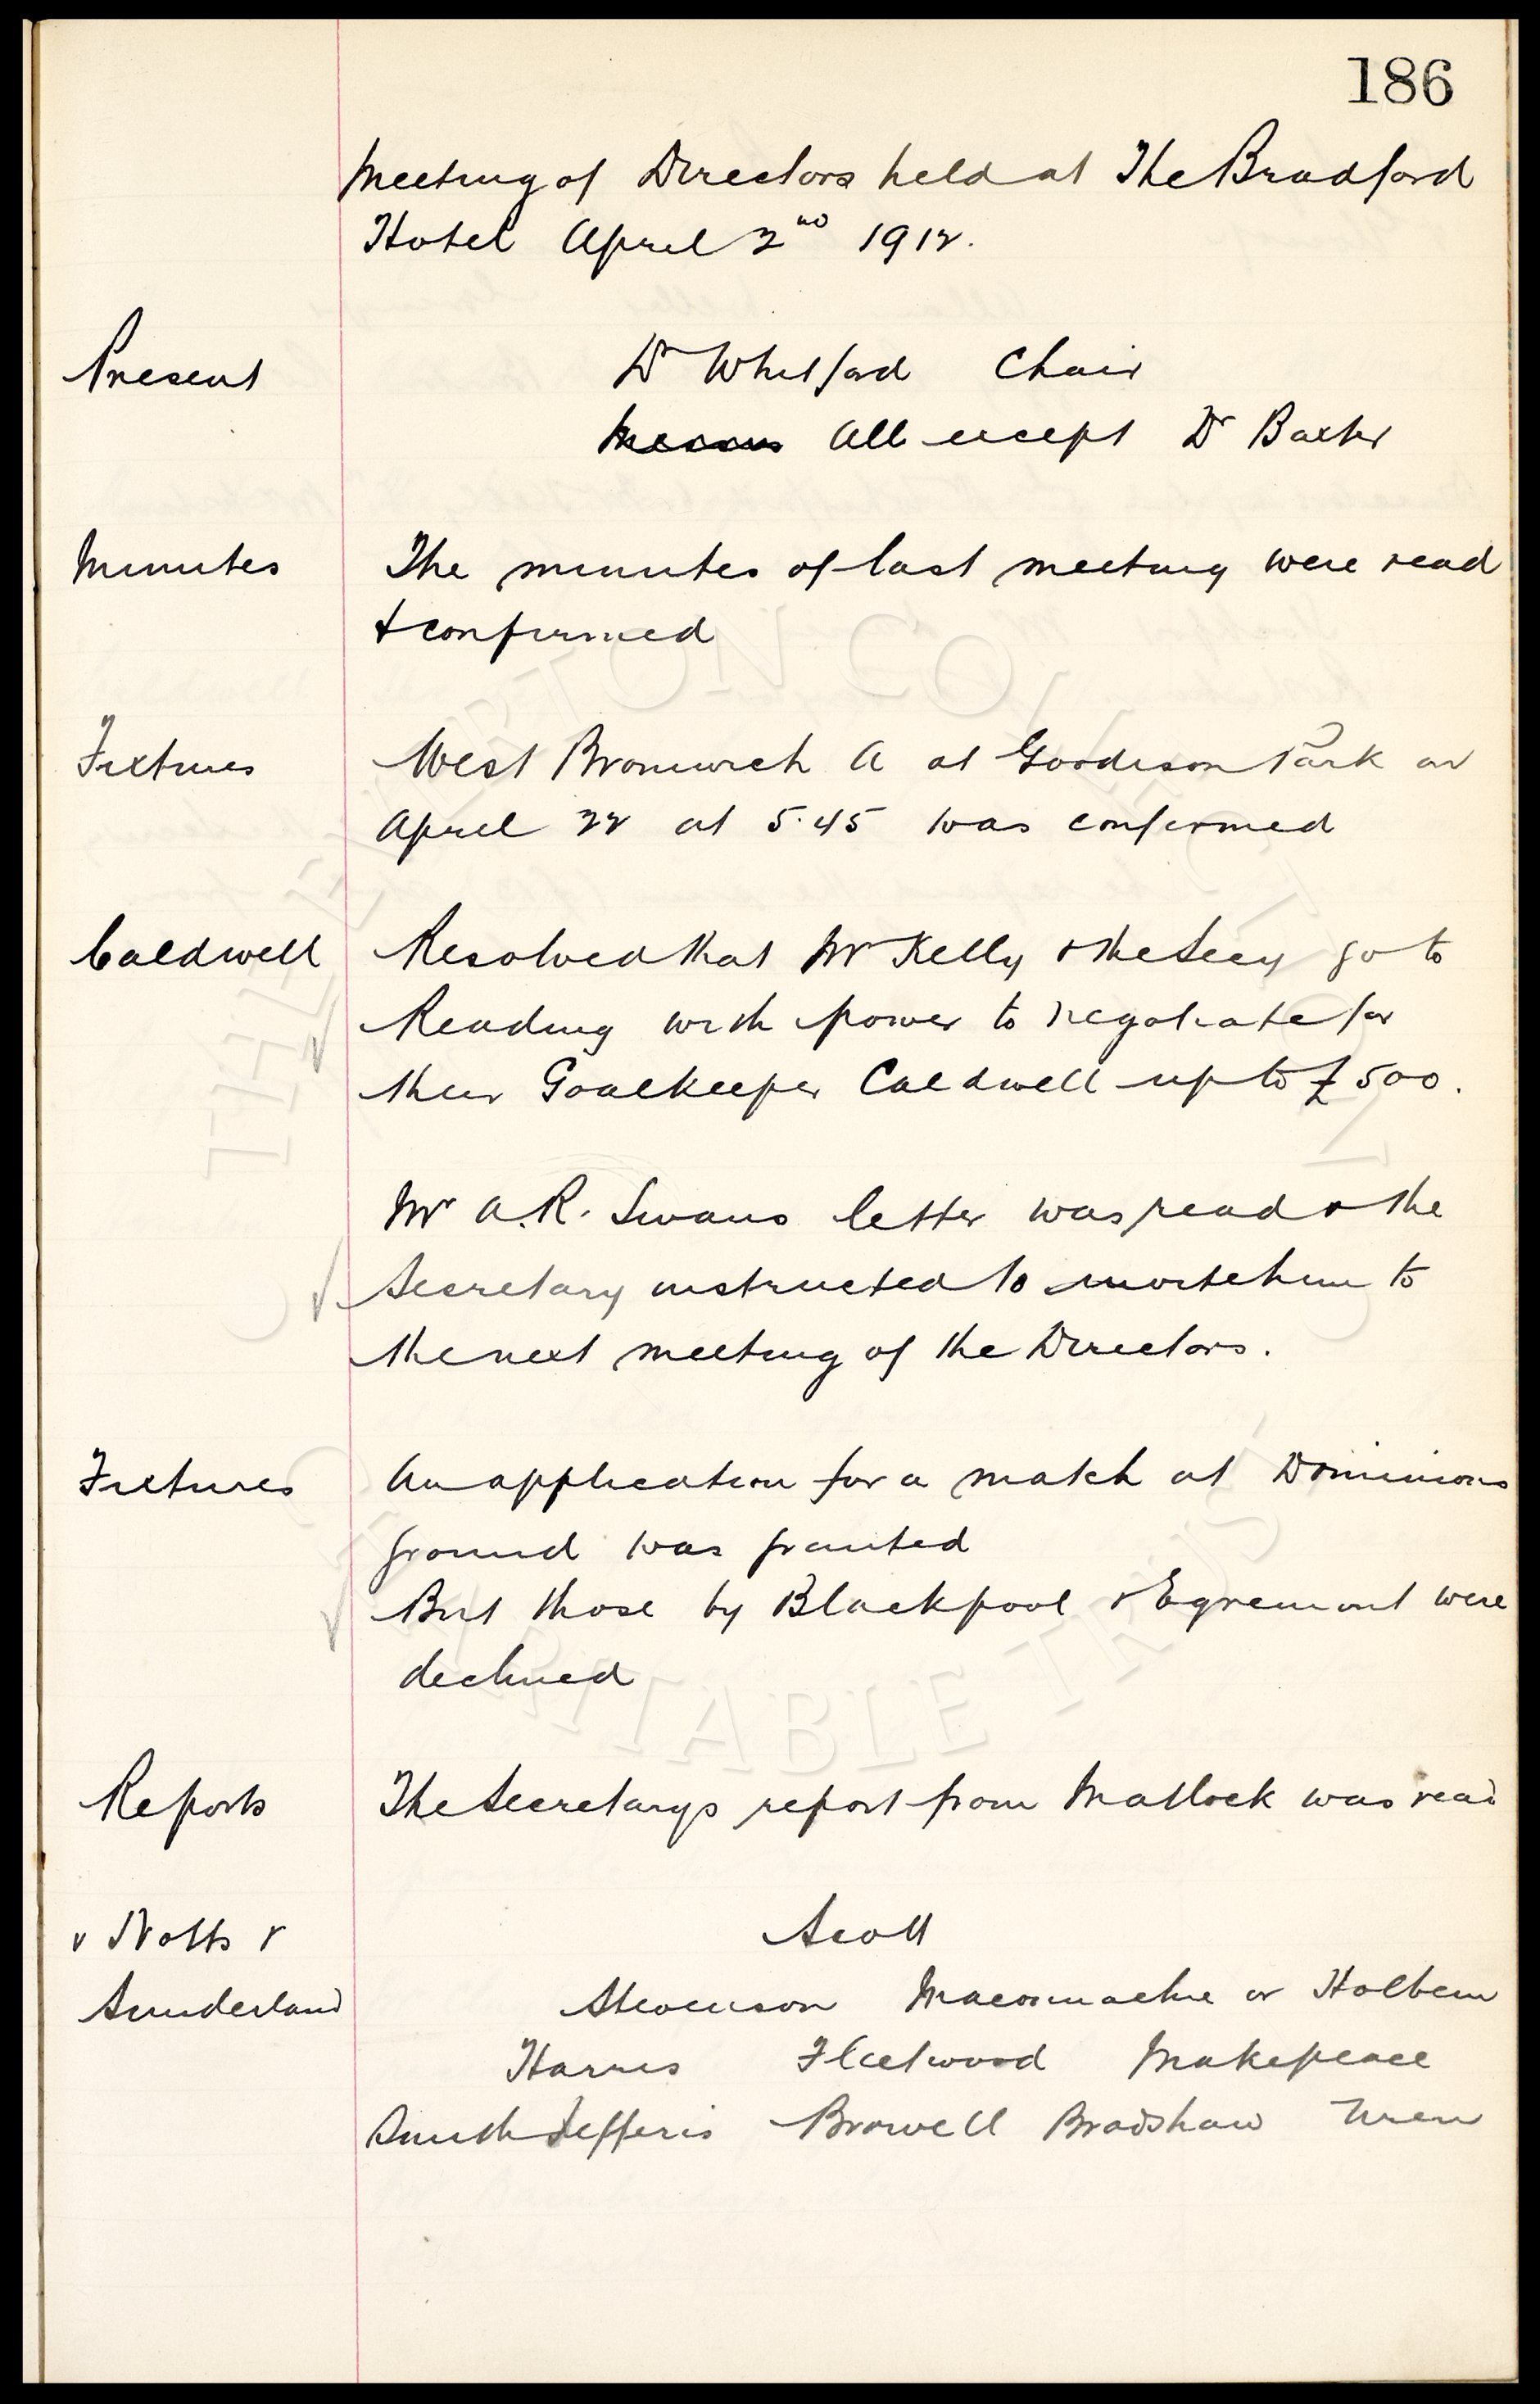 186
Meeting of Directors held at The Bradford
Hotel April 2nd 1912.
Present
Dr Whitford Chair
Messrs All except Dr Baxter
Minutes
The minutes of last meeting were read
& confirmed
Fixtures
West Bromwich A at Goodison Park on
April 22 at 5.45 was confirmed
Caldwell
Resolved that Mr Kelly & the Secy go to
Reading with power to negotiate for
their Goalkeeper Caldwell up to £500.
Mr A.R. Swans letter was read & the
Secretary instructed to invite him to
the next meeting of the Directors.
Fixtures
An application for a match at Dominions
ground was granted
But those by Blackpool & Egremont were
declined
Reports
The Secretarys report from Matlock was read
v Notts &
Sunderland
Scott
Stevenson Maconnachie or Holbem
Harris Fleetwood Makepeace
Smith Jefferis Browell Bradshaw Uren
THE EVERTON COLLECTION
CHARITABLE TRUST